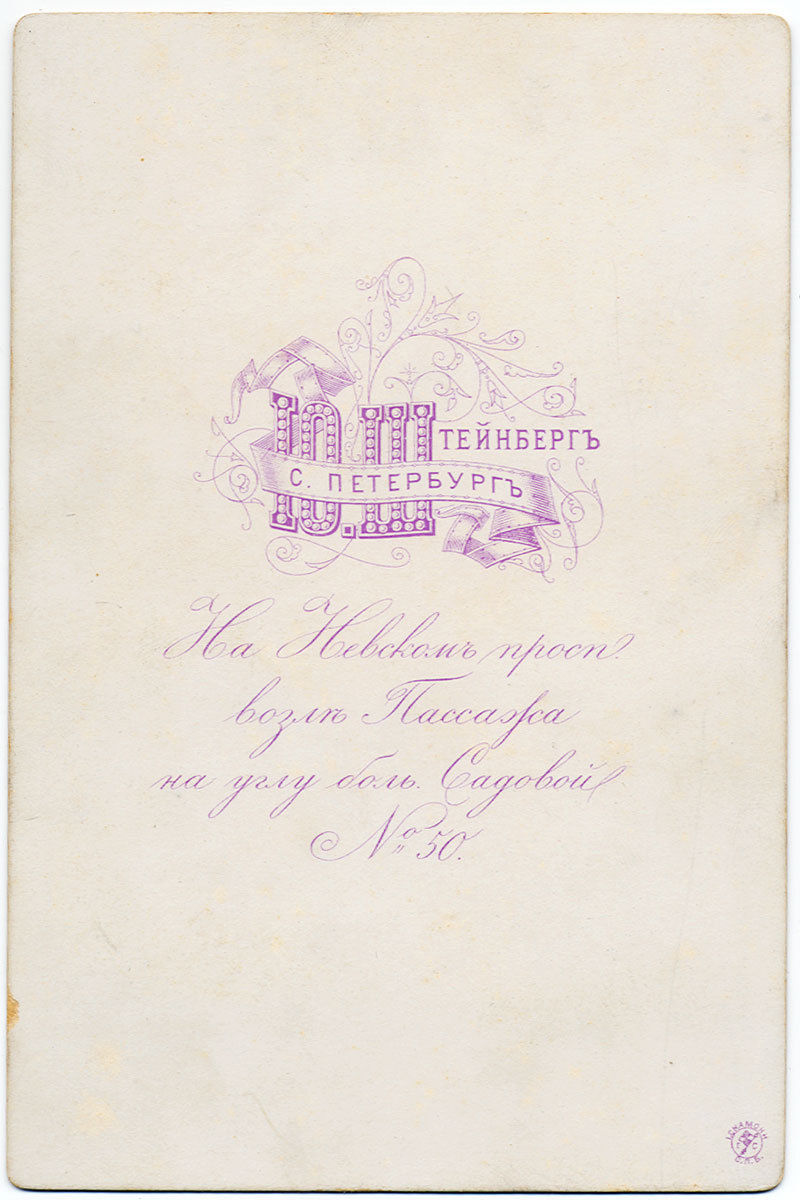 Ю.ШТЕЙНБЕРГЪ
С. ПЕТЕРБУРГЪ
На Невскомъ просп.
возлѣ Пассажа
на углу боль. Садовой
№ 50.
С.П.Б.